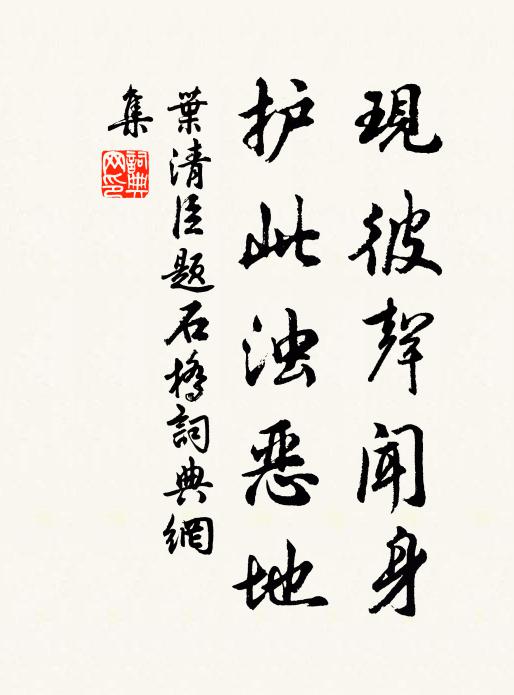 現彼聲闻身
护此浊恶地
葉清臣題石橋詞典網
集
詞典
网印